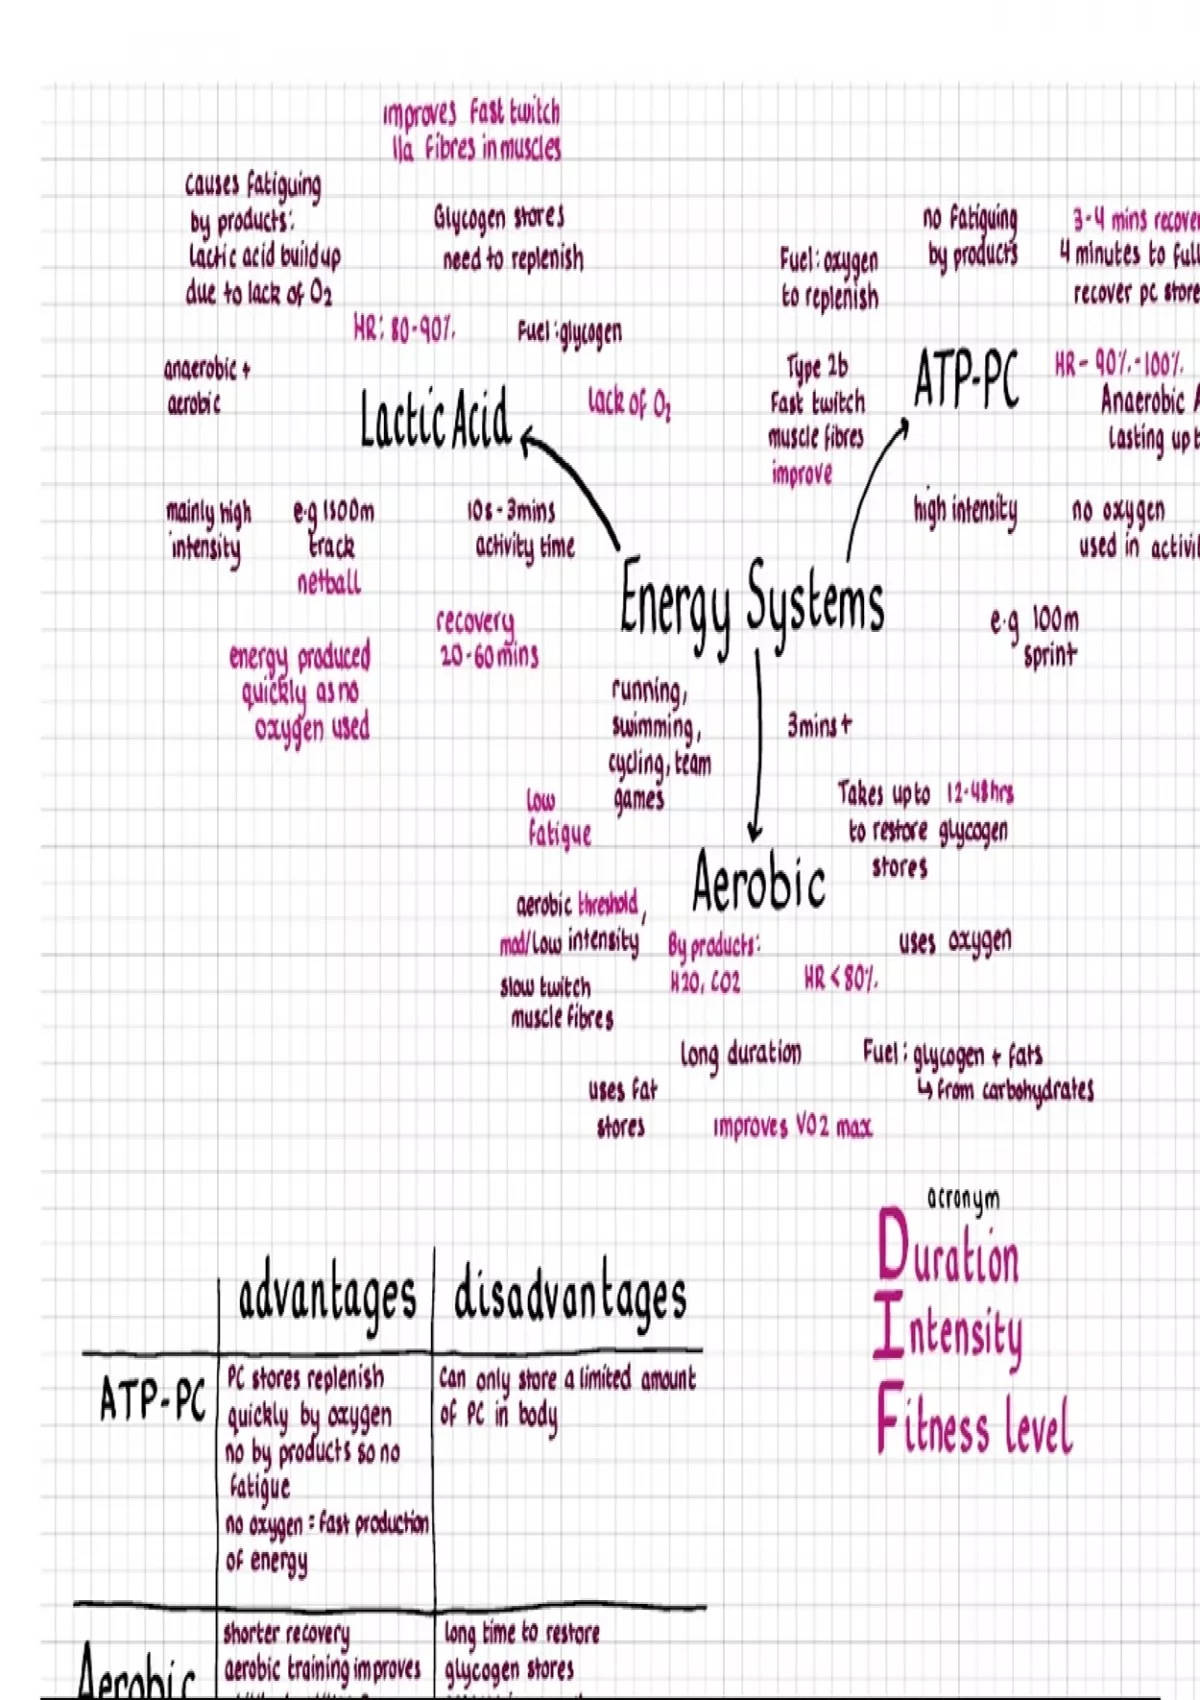 improves fast twitch
11a fibres in muscles
causes fatiguing
by products:
lactic acid buildup
due to lack of O2
Glycogen stores
need to replenish
HR: 80-90%
Fuel: glycogen
anaerobic +
aerobic
Lactic Acid
lack of O2
mainly high
intensity
e.g 1500m
track
netball
10s-3mins
activity time
recovery
20-60 mins
energy produced
quickly as no
oxygen used
no fatiguing
by products
3-4 mins
4 minutes to
recover pc
Fuel: oxygen
to replenish
Type 2b
Fast twitch
muscle fibres
improve
ATP-PC
HR - 90%-100%
Anaerobic
Lasting up
high intensity
no oxygen
used in
e.g 100m
sprint
Energy Systems
running,
swimming,
cycling, team
games
3mins+
low
fatigue
Takes up to 12-48hrs
to restore glycogen
stores
Aerobic
aerobic threshold,
mod/low intensity
slow twitch
muscle fibres
By products:
H2O, CO2
HR < 80%
uses oxygen
long duration
Fuel: glycogen + fats
↳ from carbohydrates
uses fat
stores
improves VO2 max
acronym
Duration
Intensity
Fitness level
advantages disadvantages
ATP-PC
PC stores replenish
quickly by oxygen
no by products so no
fatigue
no oxygen = fast production
of energy
Can only store a limited amount
of PC in body
Aerobic
shorter recovery
aerobic training improves
long time to restore
glycogen stores